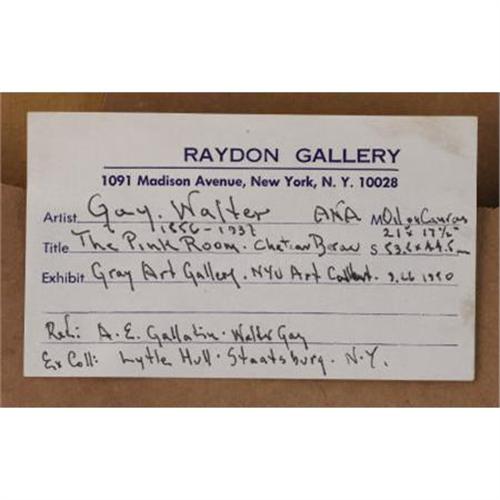 RAYDON GALLERY
1091 Madison Avenue, New York, N. Y. 10028
Artist Gay. Walter ANA M Oil on Canvas
1856-1937 21 x 17½"
Title The Pink Room. S
Exhibit Gray Art Gallery. NYU Art 1980
Ref: A. E. Gallatin. Walter Gay
Ex Coll: Lytle Hull. Staatsburg. N.Y.